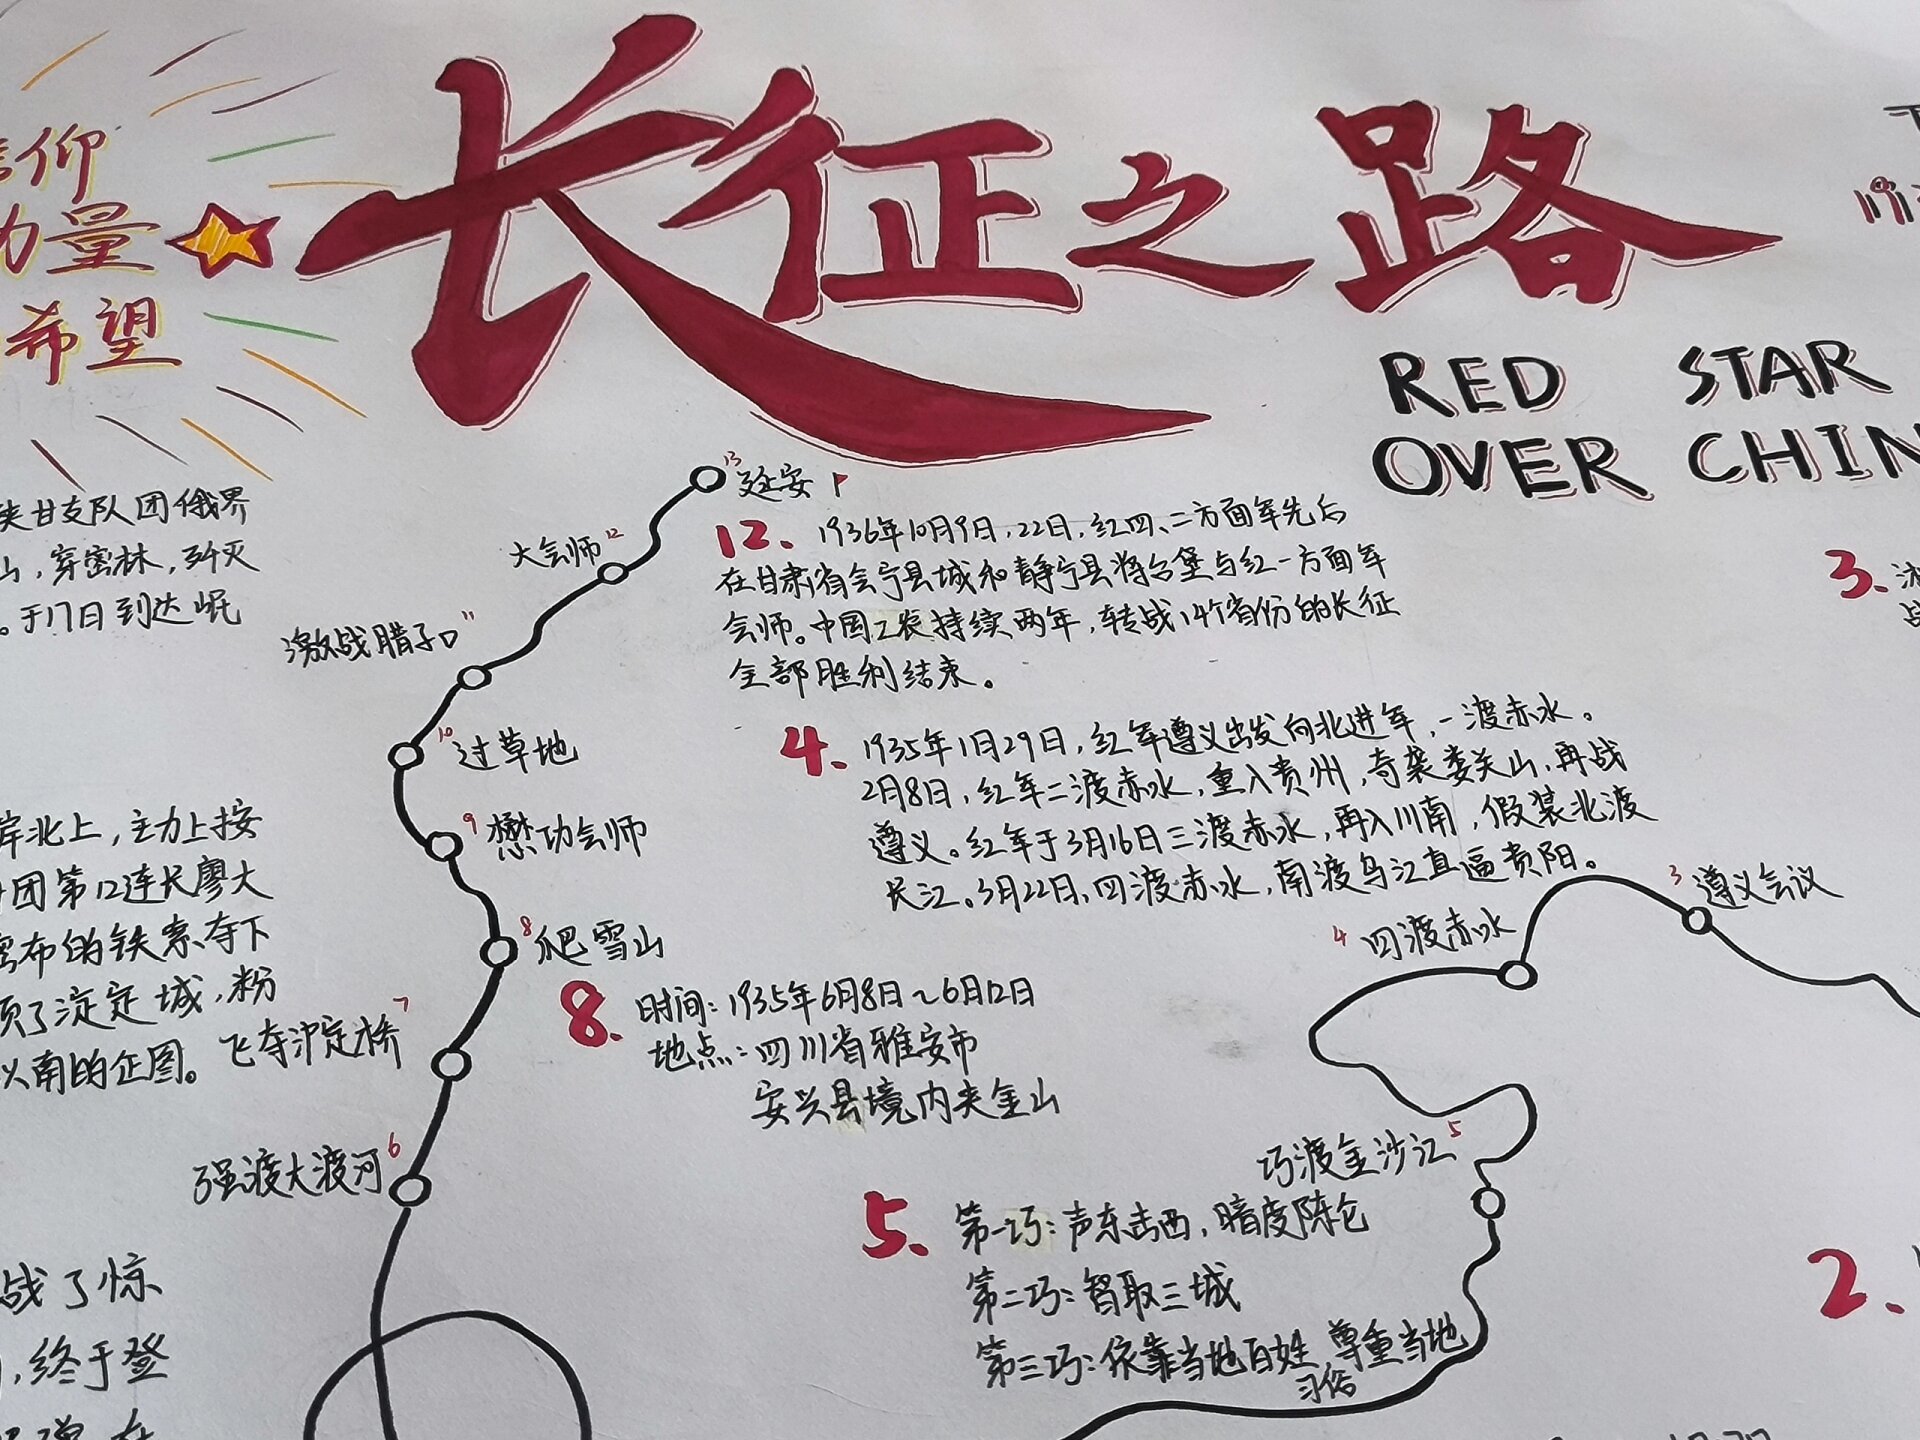 长征之路
RED STAR
OVER CHIN
仰
量
希望
13
延安
12
大会师
11
激战腊子口
10
过草地
9
懋功会师
8
爬雪山
7
飞夺泸定桥
6
强渡大渡河
5
巧渡金沙江
4
四渡赤水
3
遵义会议
12. 1936年10月9日,22日,红四、二方面军先后
在甘肃省会宁县城和静宁县将台堡与红一方面军
会师。中国工农持续两年,转战14个省份的长征
全部胜利结束。
4. 1935年1月29日,红军遵义出发向北进军,一渡赤水。
2月8日,红军二渡赤水,重入贵州,奇袭娄关山,再战
遵义。红军于3月16日三渡赤水,再入川南,假装北渡
长江。3月22日,四渡赤水,南渡乌江直逼贵阳。
8. 时间:1935年6月8日~6月12日
地点:四川省雅安市
安兴县境内夹金山
5. 第一巧:声东击西,暗度陈仓
第二巧:智取三城
第三巧:依靠当地百姓 尊重当地
习俗
甘支队团俄界
山,穿密林,歼灭
。于17日到达岷
岸北上,主力上按
团第12连长廖大
密布的铁索,夺下
了淀定城,粉
以南的企图。
战了惊
,终于登
3.
2.